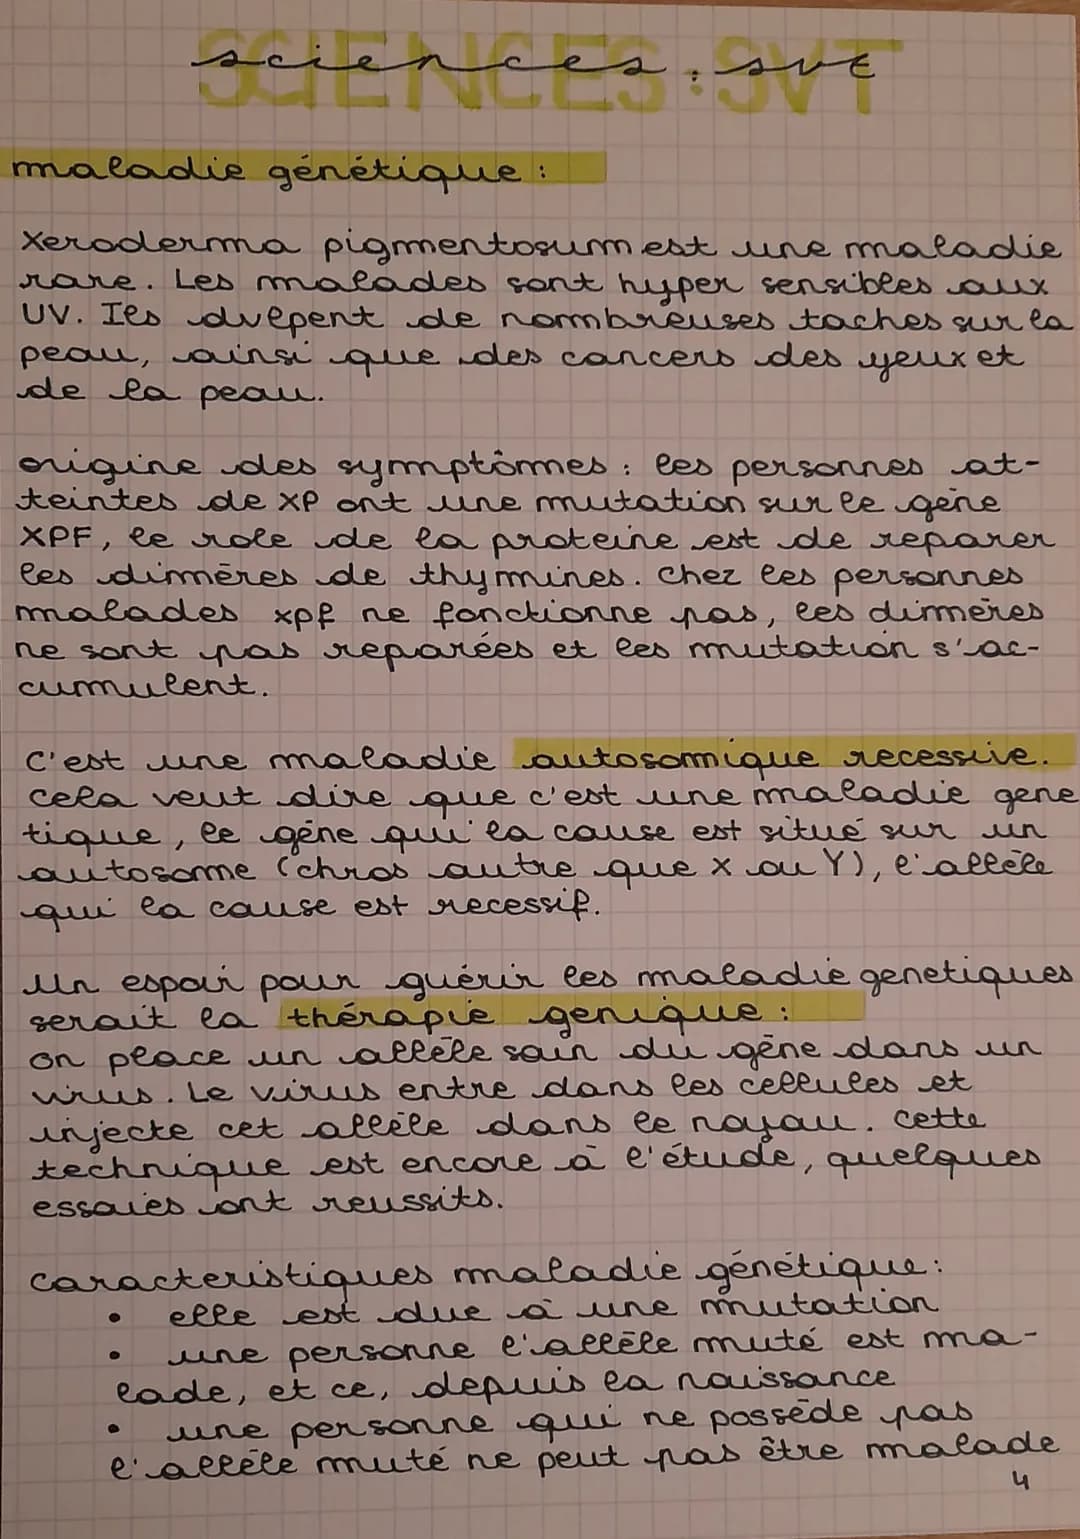 SCIENCES:SVT
sciences : svt
maladie génétique :
Xeroderma pigmentosum est une maladie
rare. Les malades sont hyper sensibles aux
UV. Ils dvlpent de nombreuses taches sur la
peau, ainsi que des cancers des yeux et
de la peau.
origine des symptômes : les personnes at-
teintes de XP ont une mutation sur le gène
XPF, le role de la proteine est de reparer
les dimères de thymines. Chez les personnes
malades xpf ne fonctionne pas, les dimères
ne sont pas reparées et les mutation s'ac-
cumulent.
C'est une maladie autosomique recessive.
Cela veut dire que c'est une maladie gene
tique, le gène qui la cause est situé sur un
autosome (chros autre que X ou Y), l'allèle
qui la cause est recessif.
Un espoir pour guérir les maladie genetiques
serait la thérapie genique :
on place un allèle sain du gène dans un
virus. Le virus entre dans les cellules et
injecte cet allèle dans le noyau. Cette
technique est encore à l'étude, quelques
essaies ont reussits.
caracteristiques maladie génétique :
• elle est due à une mutation
• une personne l'allèle muté est ma-
lade, et ce, depuis la naissance
• une personne qui ne possède pas
l'allèle muté ne peut pas être malade
4